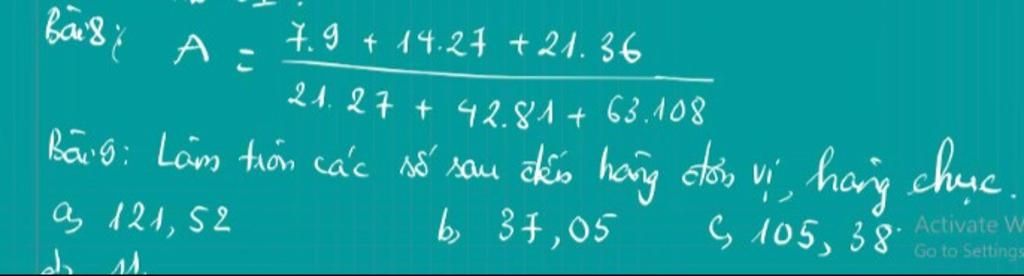 Bài 8:
A = 7.9 + 14.27 + 21.36
21.27 + 42.81 + 63.108
Bài 9: Làm tròn các số sau đến hàng đơn vị, hàng chục.
a, 121,52 b, 37,05 c, 105,38.
Activate W
Go to Settings